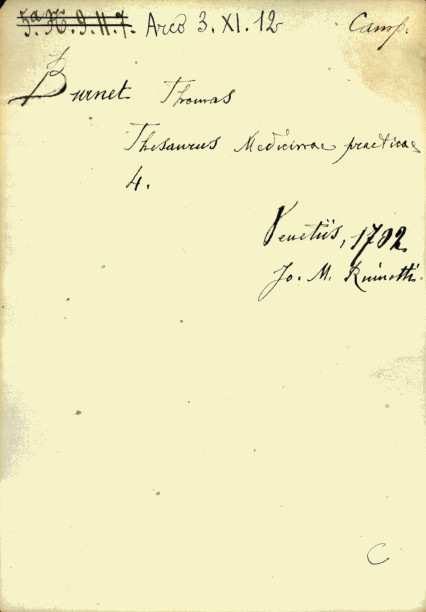 5.a K. 9. II. 7. Arco 3. XI. 12 Camp.
Burnet Thomas
Thesaurus Medicinae practicae
4.
Venetiis, 1702
Jo. M.
C